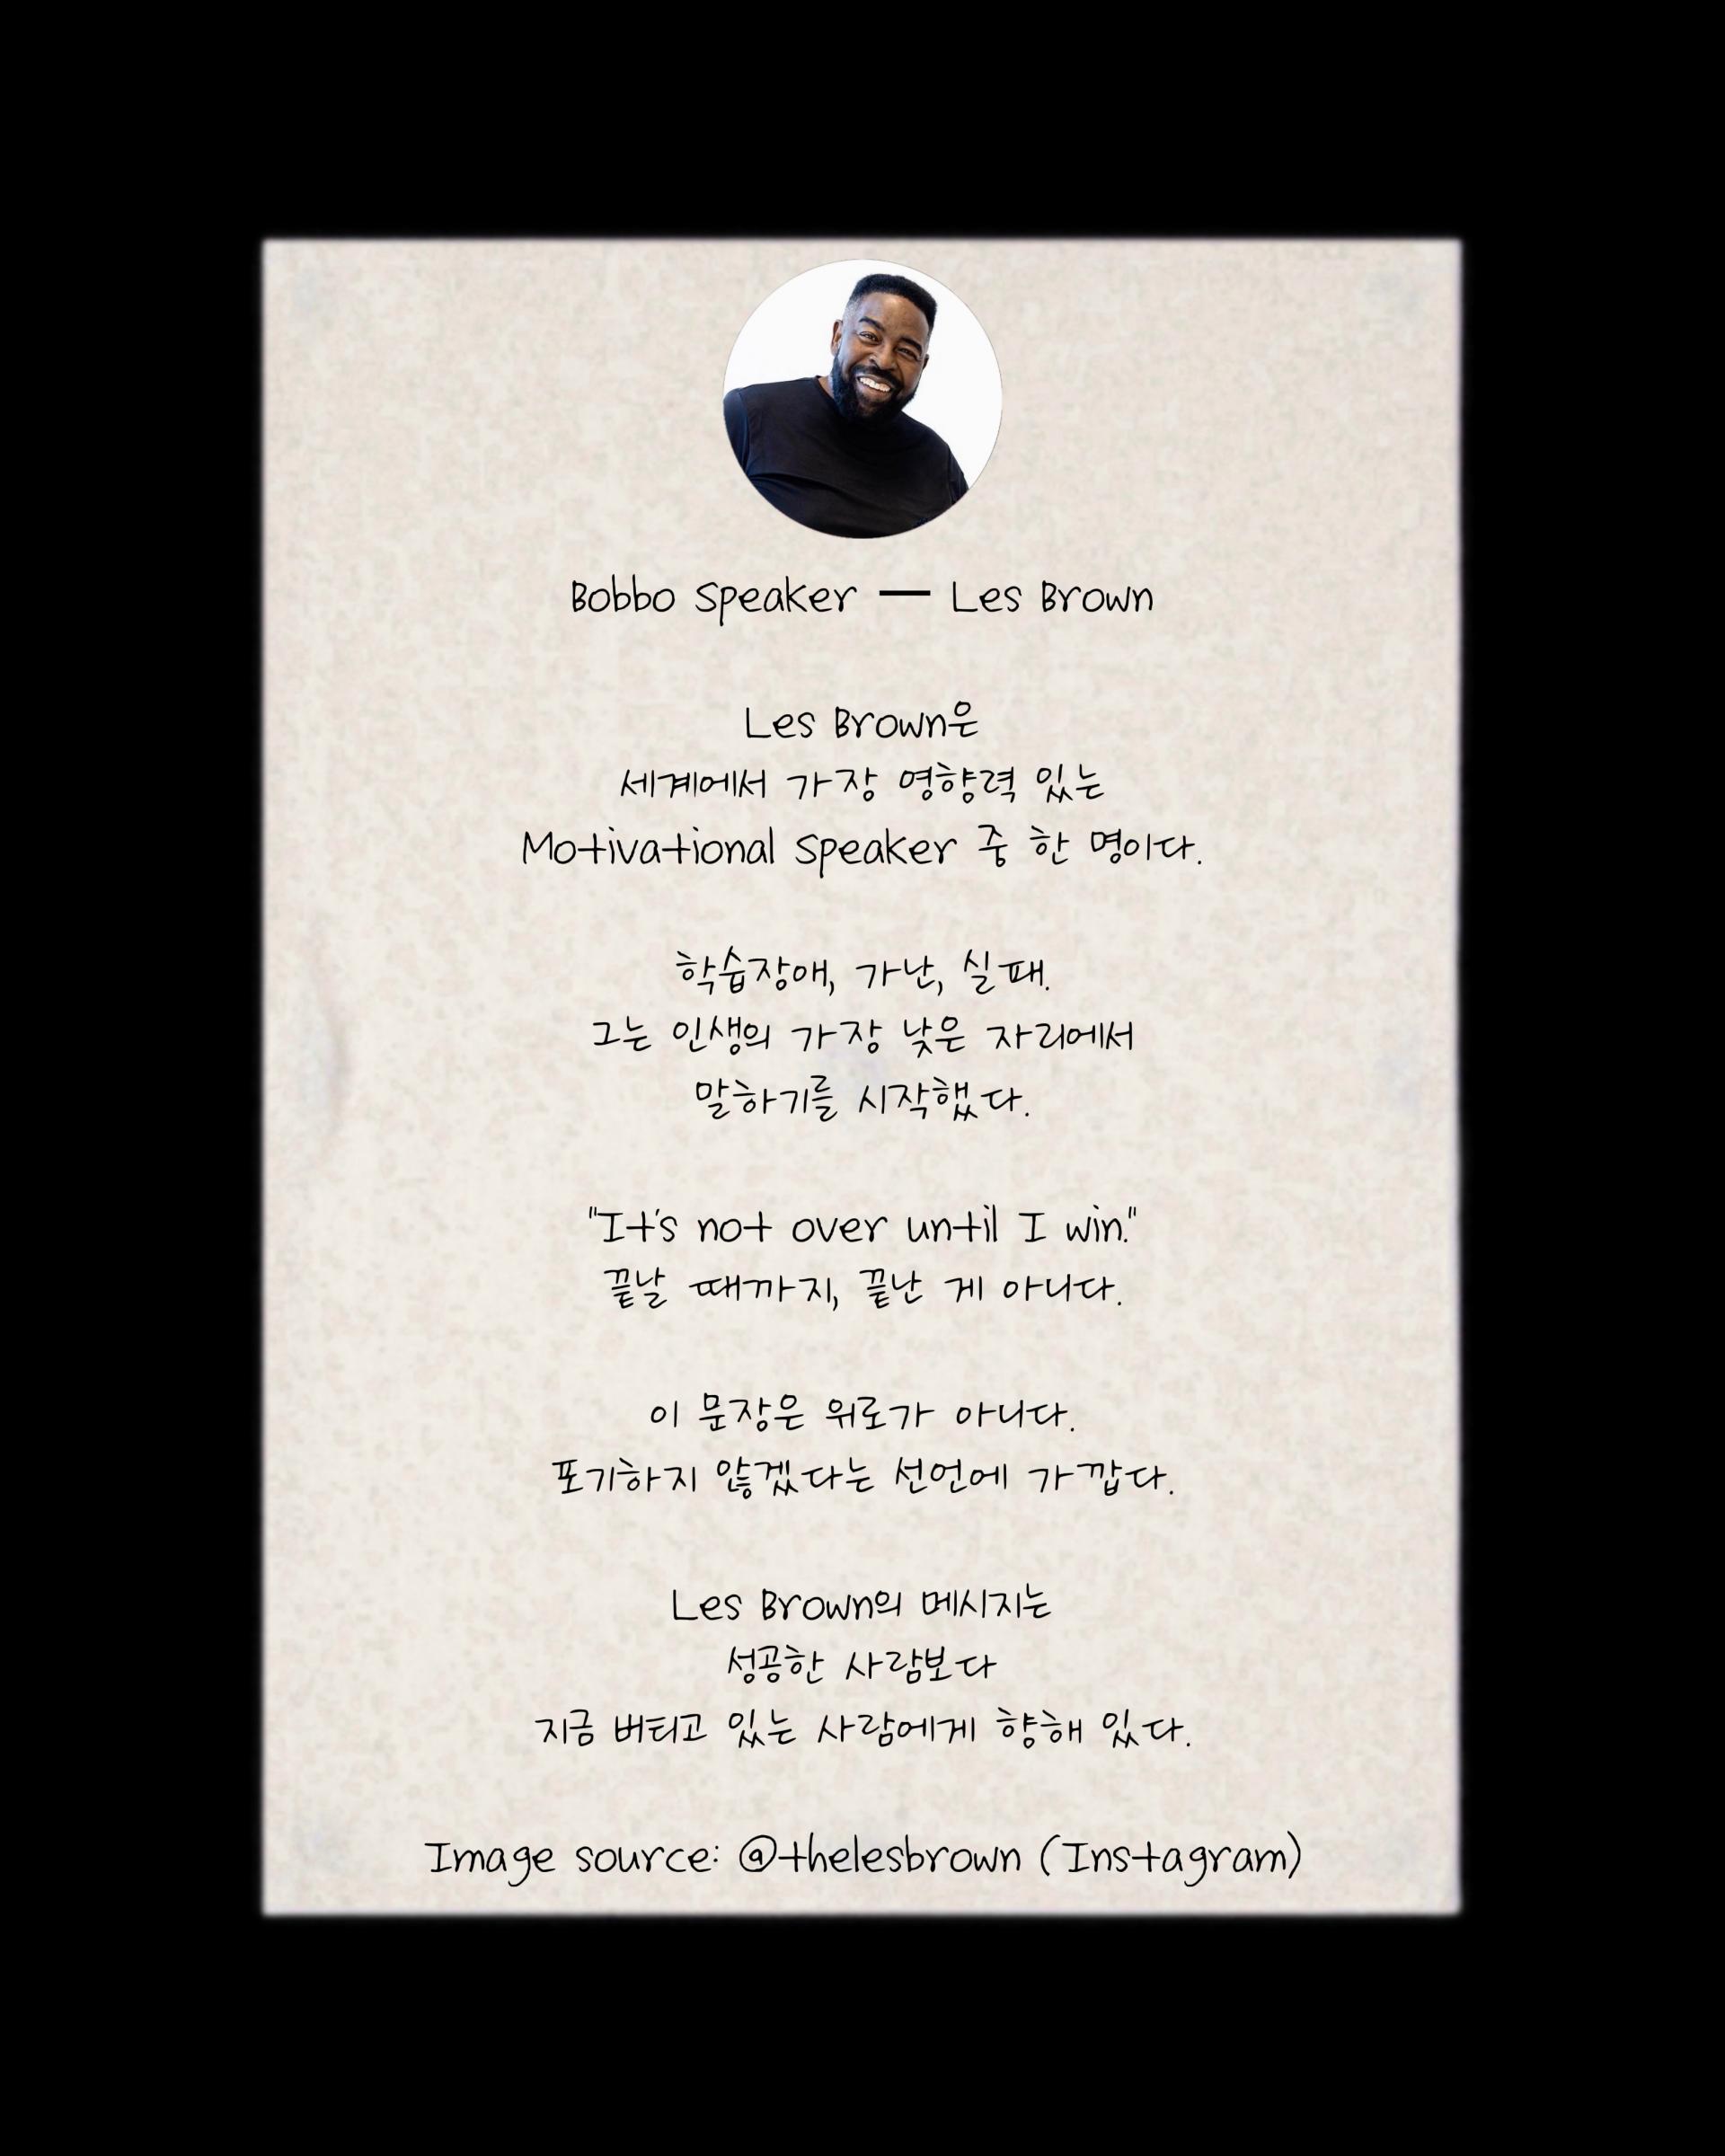 Bobbo Speaker — Les Brown
Les Brown은
세계에서 가장 영향력 있는
Motivational Speaker 중 한 명이다.
학습장애, 가난, 실패.
그는 인생의 가장 낮은 자리에서
말하기를 시작했다.
"It's not over until I win."
끝날 때까지, 끝난 게 아니다.
이 문장은 위로가 아니다.
포기하지 않겠다는 선언에 가깝다.
Les Brown의 메시지는
성공한 사람보다
지금 버티고 있는 사람에게 향해 있다.
Image source: @thelesbrown (Instagram)